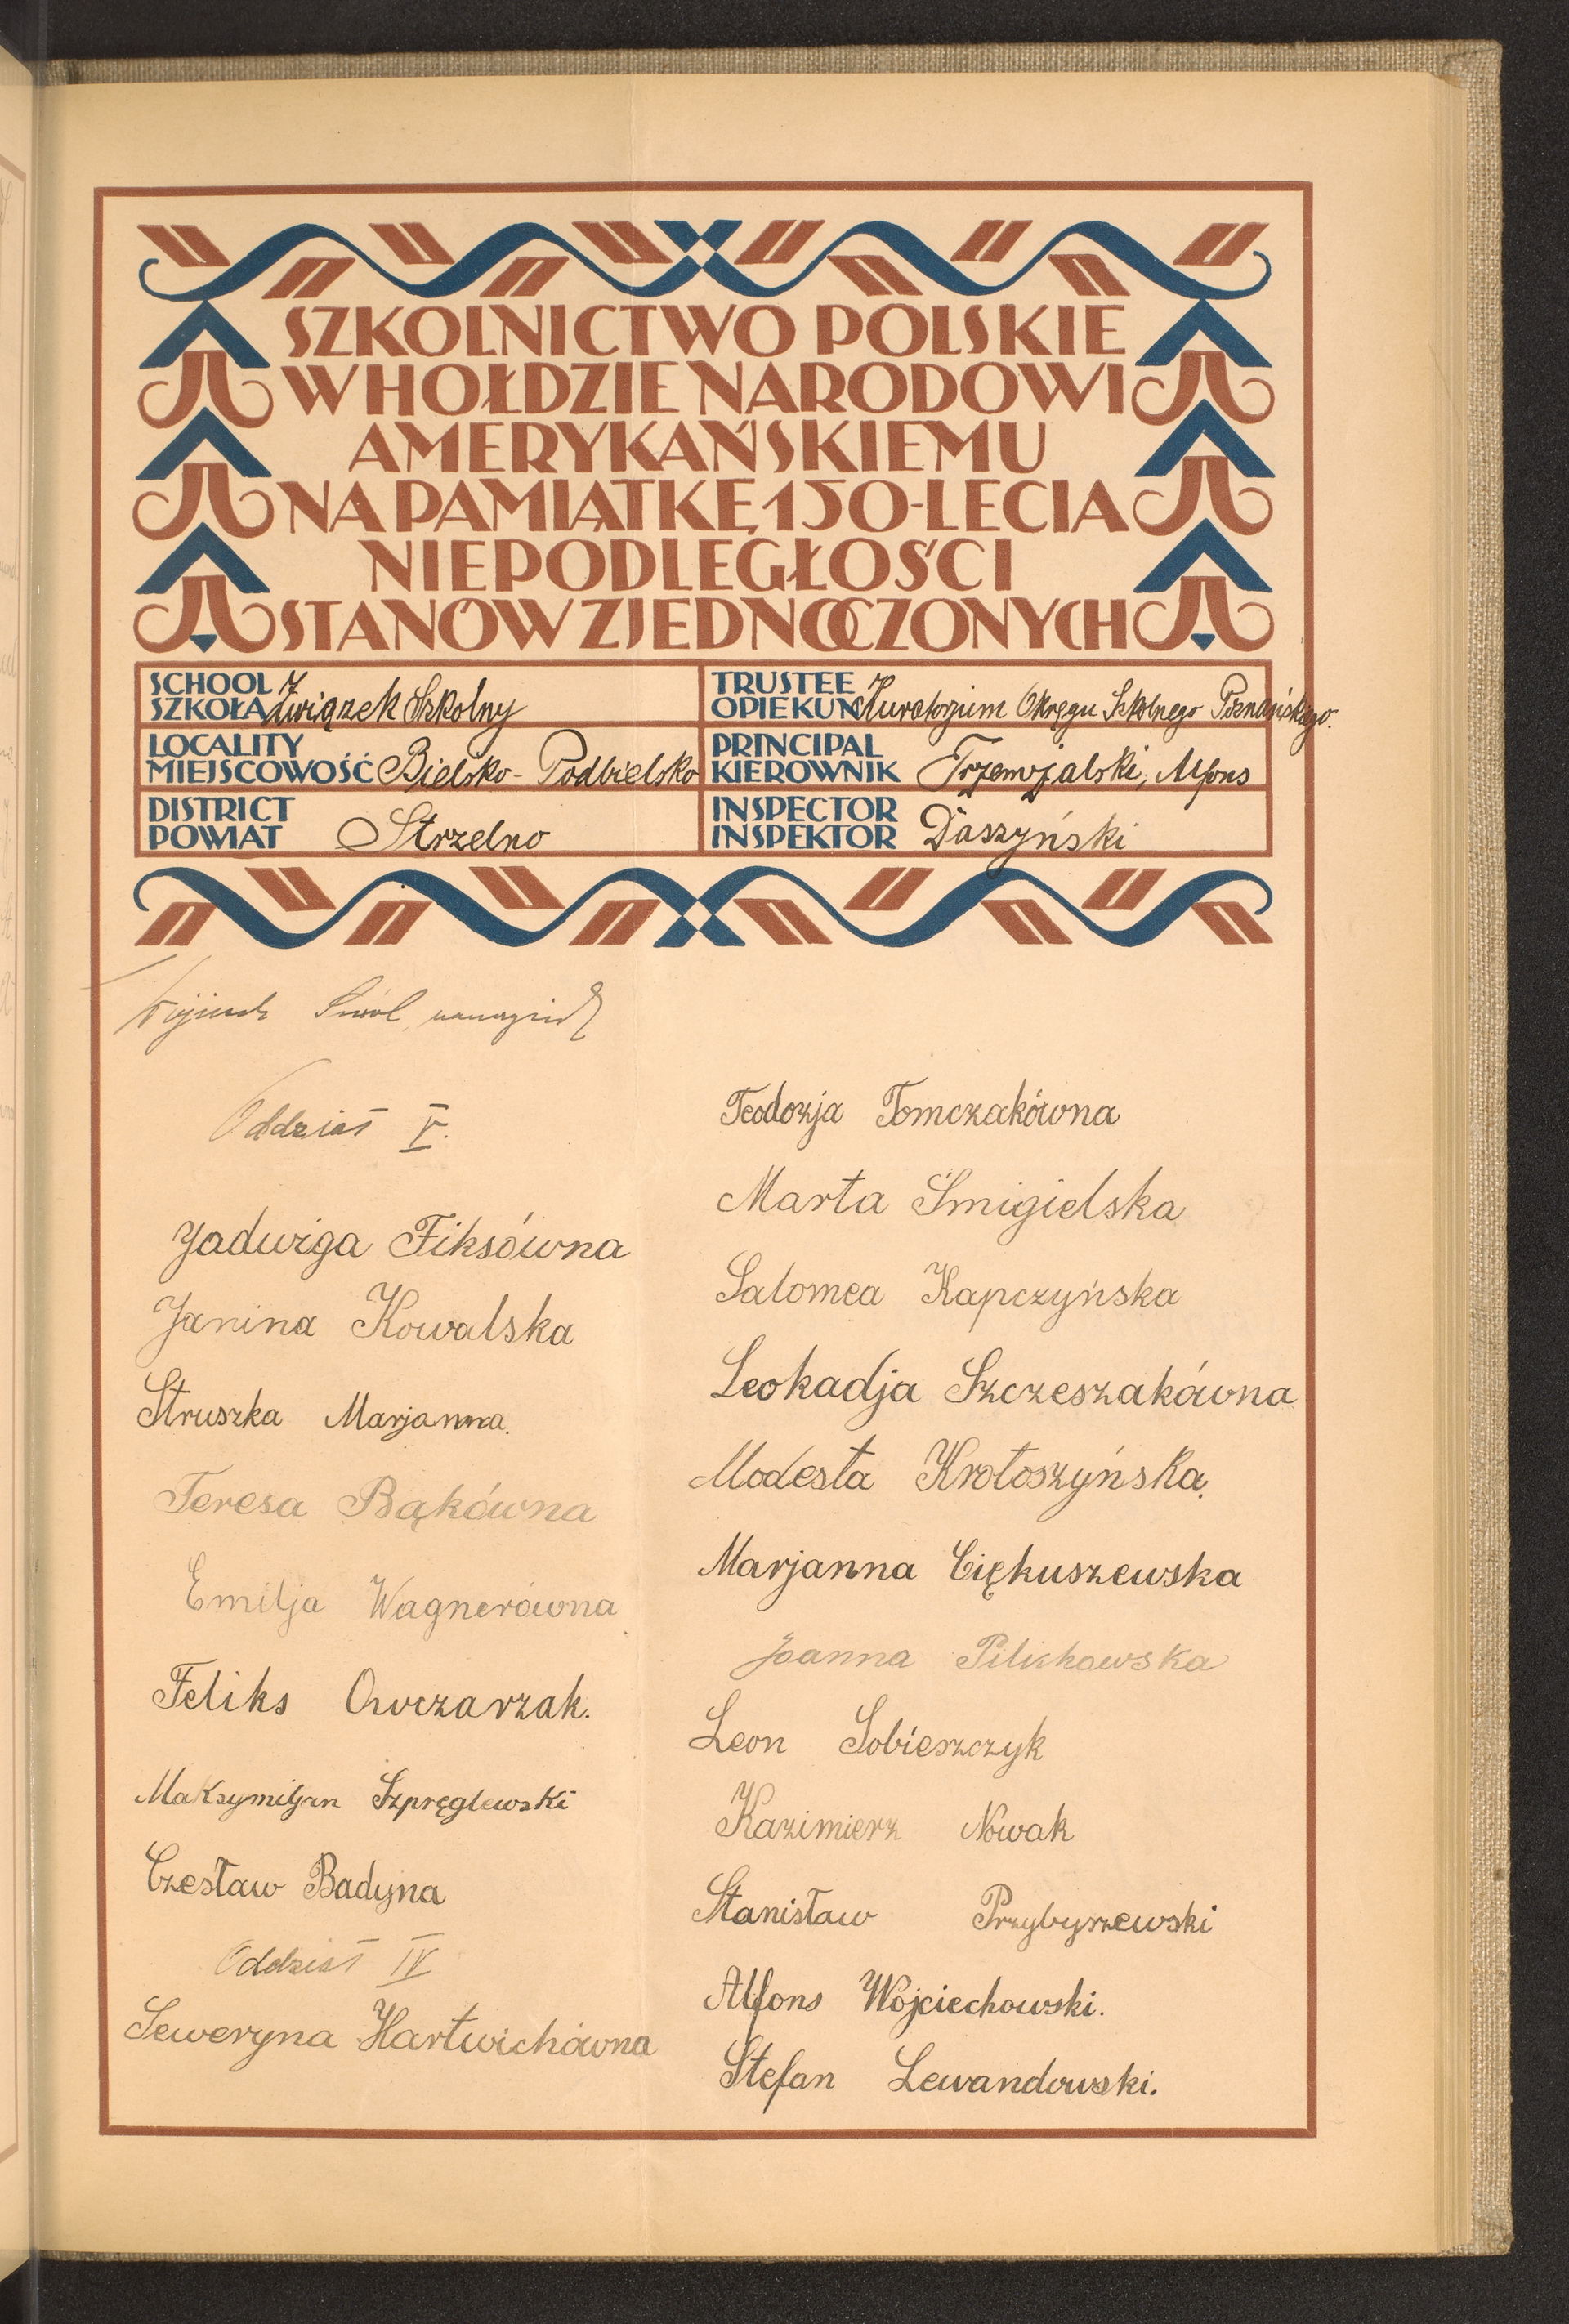 SZKOLNICTWO POLSKIE
W HOŁDZIE NARODOWI
AMERYKAŃSKIEMU
NA PAMIĄTKĘ 150-LECIA
NIEPODLEGŁOŚCI
STANÓW ZJEDNOCZONYCH
SCHOOL
SZKOŁA Związek Szkolny
TRUSTEE
OPIEKUN Kuratorjum Okręgu Szkolnego Poznańskiego.
LOCALITY
MIEJSCOWOŚĆ Bielsko-Podbielsko
PRINCIPAL
KIEROWNIK Trzemżalski, Alfons
DISTRICT
POWIAT Strzelno
INSPECTOR
INSPEKTOR Daszyński
Oddział V.
Jadwiga Fiksówna
Janina Kowalska
Struszka Marjanna.
Teresa Bąkówna
Emilja Wagnerówna
Feliks Owczarzak.
Maksymiljan Szpręglewski
Czesław Badyna
Oddział IV
Seweryna Hartwichówna
Teodozja Tomczakówna
Marta Śmigielska
Salomea Kapczyńska
Leokadja Szczeszakówna
Modesta Krotoszyńska.
Marjanna Ciękuszewska
Joanna Pilichowska
Leon Sobieszczyk
Kazimierz Nowak
Stanisław Przybyszewski
Alfons Wojciechowski.
Stefan Lewandowski.